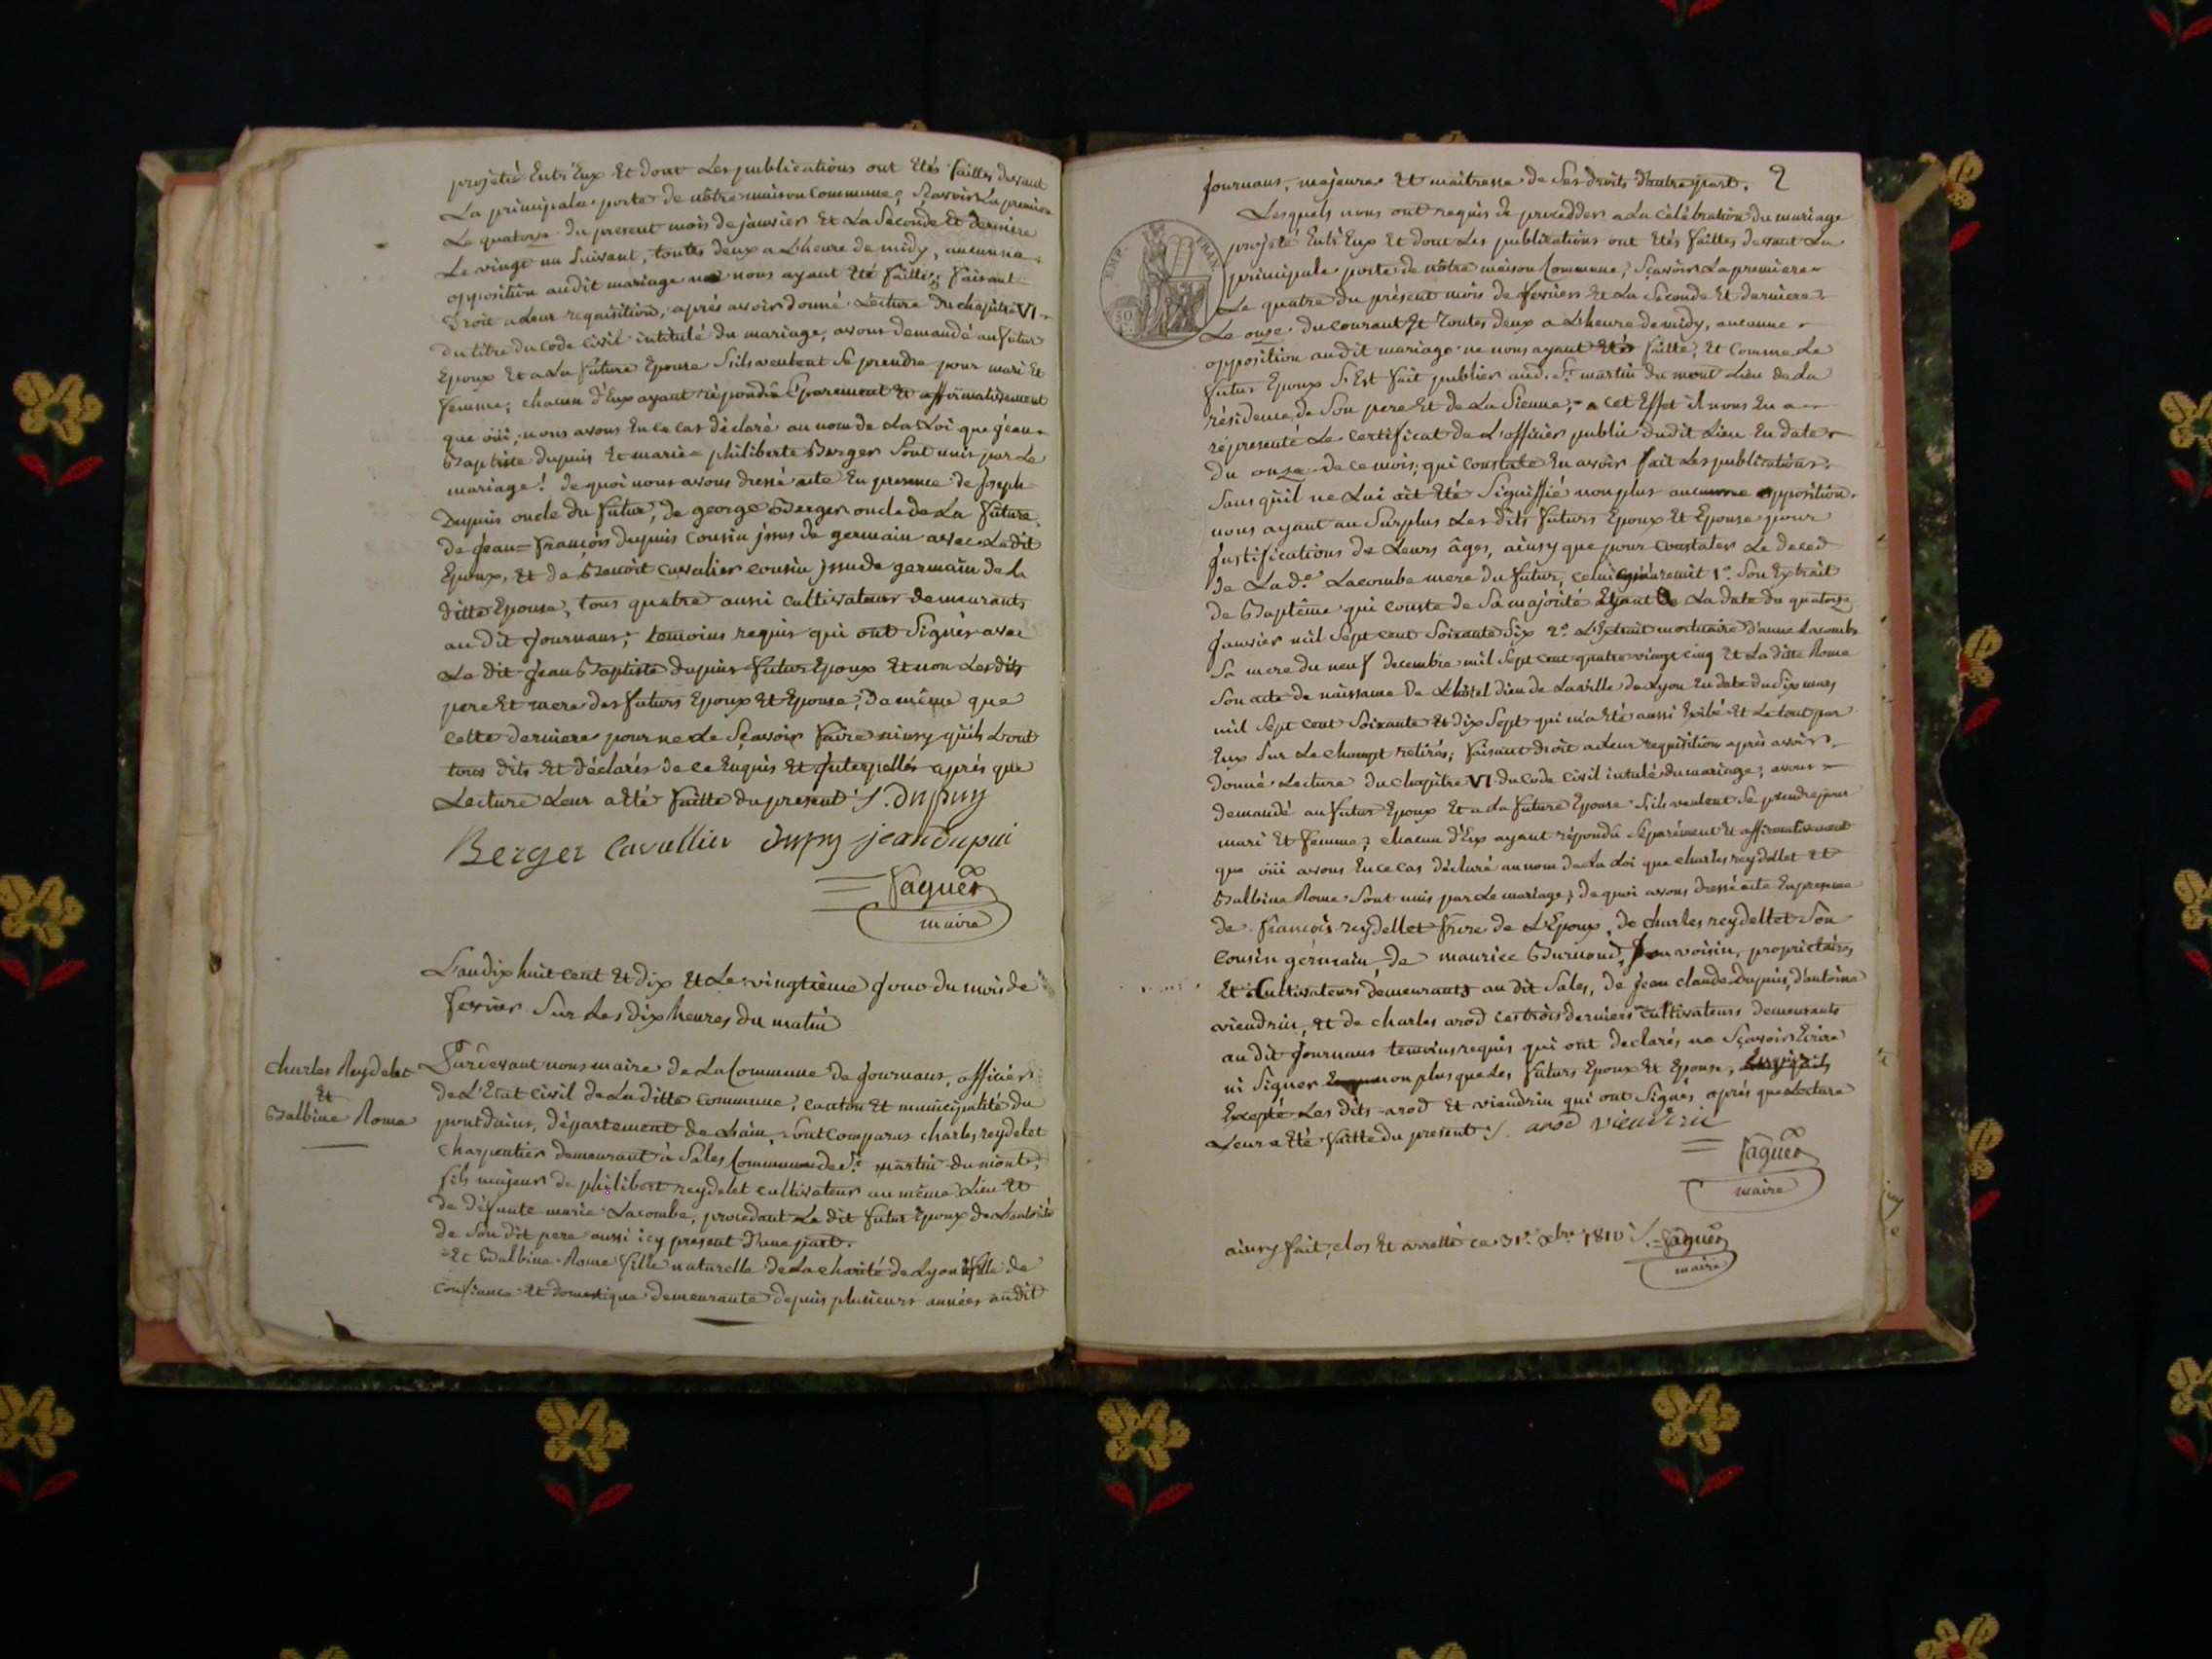 projetté Entr'Eux Et dont Les publications ont Etés faittes devant
La principale porte de nôtre maison Commune; Sçavoir La premiere
Le quatorze du present mois de janvier Et La Seconde Et derniere
Le vingt un Suivant, toutes deux a L'heure de midy, aucunne
opposition audit mariage ne nous ayant Eté faitte; faisant
Droit a Leur requisition, aprés avoir donné Lecture du chapitre VI
du titre du Code Civil intitulé du mariage, avons demandé au futur
Epoux Et a La future Epouse S'ils veulent Se prendre pour mari Et
femme; chacun d'Eux ayant répondû Séparement Et affirmativement
que oüi; nous avons En ce cas déclaré au nom de La Loi que jean
Baptiste dupuis Et marie philiberte Berger Sont unis par Le
mariage! de quoi nous avons dressé acte En presence de joseph
Dupuis oncle du futur, de george Berger oncle de La future
de jean=françois dupuis Cousin jssus de germain avec Le dit
Epoux, Et de Benoit Cavalier cousin jssu de germain de la
ditte Epouse, tous quatre aussi cultivateurs demeurants
au dit journans; temoins requis qui ont Signés avec
Le dit jean Baptiste dupuis futur Epoux Et non Les dits
pere Et mere des futurs Epoux Et Epouse, de même que
cette derniere pour ne Le Sçavoir faire ainsy qu'ils L'ont
tous dits Et déclarés de ce Enquis Et jnterpellés aprés que
Lecture Leur a Eté faitte du present J. Dupuy
Berger Cavallier dupuy jean dupui
faguer
maire
L'an dix huit cent Et dix Et Le vingtieme jour du mois de
fevrier Sur Les dix heures du matin
Charles Reydelet
Et
Balbine Rome
Pardevant nous maire de La Commune de journans, officier
de L'Etat Civil de La ditte commune, canton Et municipalité du
pont dains, département de L'ain, Sont Comparus charles reydelet
Charpentier demeurant à Sales Commune de St martin du mont,
fils majeur de philibert reydelet cultivateur au même Lieu Et
de défunte marie Lacombe, procedant Le dit futur Epoux de L'autorité
de Son dit pere aussi icy present d'une part.
Et Balbine Rome fille naturelle de La charité de Lyon fille de
confiance Et domestique demeurante depuis plusieurs années audit
journans, majeure Et maitresse de Ses droits d'autre part. 2
EMP. FRAN.
50
Lesquels nous ont requis de procedder a La célébration du mariage
projeté Entr'Eux Et dont Les publications ont Etés faittes devant La
principale porte de nôtre maison Commune, Sçavoir La premiere
Le quatre du présent mois de fevrier Et La Seconde Et derniere
Le onze du courant Et toutes deux a L'heure de midy, aucunne
opposition audit mariage ne nous ayant Eté faitte; Et Comme Le
futur Epoux S'Est fait publier aud. St martin du mont Lieu de La
résidence de Son pere Et de La Sienne; a cet Effet il nous En a
répresenté Le Certificat de L'officier public dudit Lieu En date
du onze de ce mois; qui Constate En avoir fait Les publications.
Sans qu'il ne Lui ait Eté Signiffié non plus aucunne opposition.
nous ayant au Surplus Les dits futurs Epoux Et Epouse pour
justifications de Leurs âges, ainsy que pour Constater Le deced
de La de Lacombe mere du futur, celui remit 1° Son Extrait
de Baptême qui Conste de Sa majorité La date du quatorze
janvier mil Sept cent Soixante Six 2° L'Extrait mortuaire d'anne Lacombe
Sa mere du neuf decembre mil Sept cent quatre vingt cinq Et La ditte Rome
Son acte de naissance de L'hôtel dieu de La ville de Lyon En date du Six mars
mil Sept cent Soixante Et dix Sept qui m'a Eté aussi Exibé Et Le tout par
Eux Sur Le champt retirés; faisant droit a Leur requisition aprés avoir
donné Lecture du chapitre VI du Code Civil intulé du mariage; avons
demandé au futur Epoux Et a La future Epouse S'ils veulent Se prendre pour
mari Et femme; chacun d'Eux ayant répondû Séparément Et affirmativement
que oüi avons En ce Cas déclaré au nom de La Loi que charles reydellet Et
Balbine Rome Sont unis par Le mariage; de quoi avons dressé acte En presence
de françois reydellet frere de L'Epoux, de charles reydellet Son
Cousin germain, de maurice Burnond, voisin, proprietaires
Et Cultivateurs demeurants au dit Sales, de jean claude dupuis, d'antoine
viendrin, Et de charles arod ces trois derniers cultivateurs demeurants
au dit journans temoins requis qui ont declarés ne Sçavoir Ecrire
ni Signer non plus que Les futurs Epoux Et Epouse,
Excepté Les dits arod Et viendrin qui ont Signés aprés que Lecture
Leur a Eté faitte du present. arod viendrin
faguer
maire
ainsy fait, clos Et arretté ce 31e xbre 1810 faguer
maire